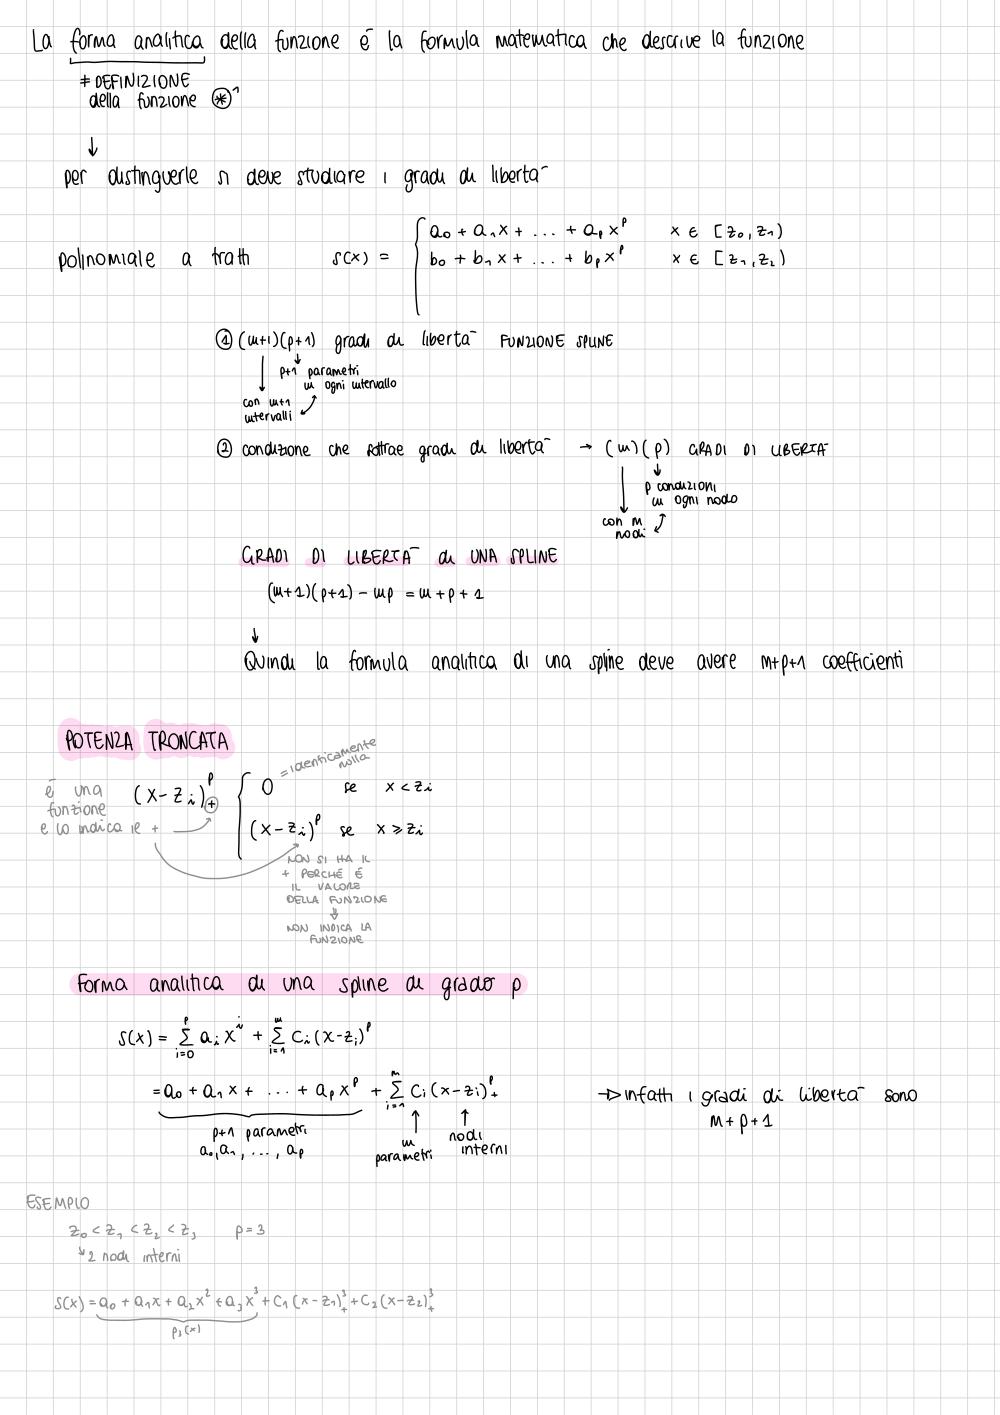 La forma analitica della funzione é la formula matematica che descrive la funzione
≠ DEFINIZIONE
della funzione ⊛¹
↓
per distinguerle si deve studiare i gradi di libertà
polinomiale a tratti s(x) = { a₀ + a₁x + ... + aₚxᵖ x ∈ [z₀, z₁)
b₀ + b₁x + ... + bₚxᵖ x ∈ [z₁, z₂)
① (m+1)(p+1) gradi di libertà FUNZIONE SPLINE
p+1 parametri
in ogni intervallo
con m+1
intervalli
② condizione che sottrae gradi di libertà → (m)(p) GRADI DI LIBERTÀ
p condizioni
in ogni nodo
con m
nodi
GRADI DI LIBERTÀ di UNA SPLINE
(m+1)(p+1) - mp = m + p + 1
↓
Quindi la formula analitica di una spline deve avere m+p+1 coefficienti
POTENZA TRONCATA
é una
funzione
e lo indica il +
(x - zᵢ)₊ᵖ { 0 = identicamente nulla se x < zᵢ
(x - zᵢ)ᵖ se x ⩾ zᵢ
NON SI HA IL
+ PERCHÉ É
IL VALORE
DELLA FUNZIONE
⇓
NON INDICA LA
FUNZIONE
Forma analitica di una spline di grado p
s(x) = Σᵢ₌₀ᵖ aᵢxⁱ + Σᵢ₌₁ᵐ cᵢ(x-zᵢ)ᵖ
= a₀ + a₁x + ... + aₚxᵖ + Σᵢ₌₁ᵐ cᵢ(x-zᵢ)₊ᵖ → infatti i gradi di libertà sono
m + p + 1
p+1 parametri
a₀, a₁, ..., aₚ
m
parametri
nodi
interni
ESEMPIO
z₀ < z₁ < z₂ < z₃ p = 3
↳ 2 nodi interni
s(x) = a₀ + a₁x + a₂x² + a₃x³ + c₁(x-z₁)₊³ + c₂(x-z₂)₊³
p₃(x)